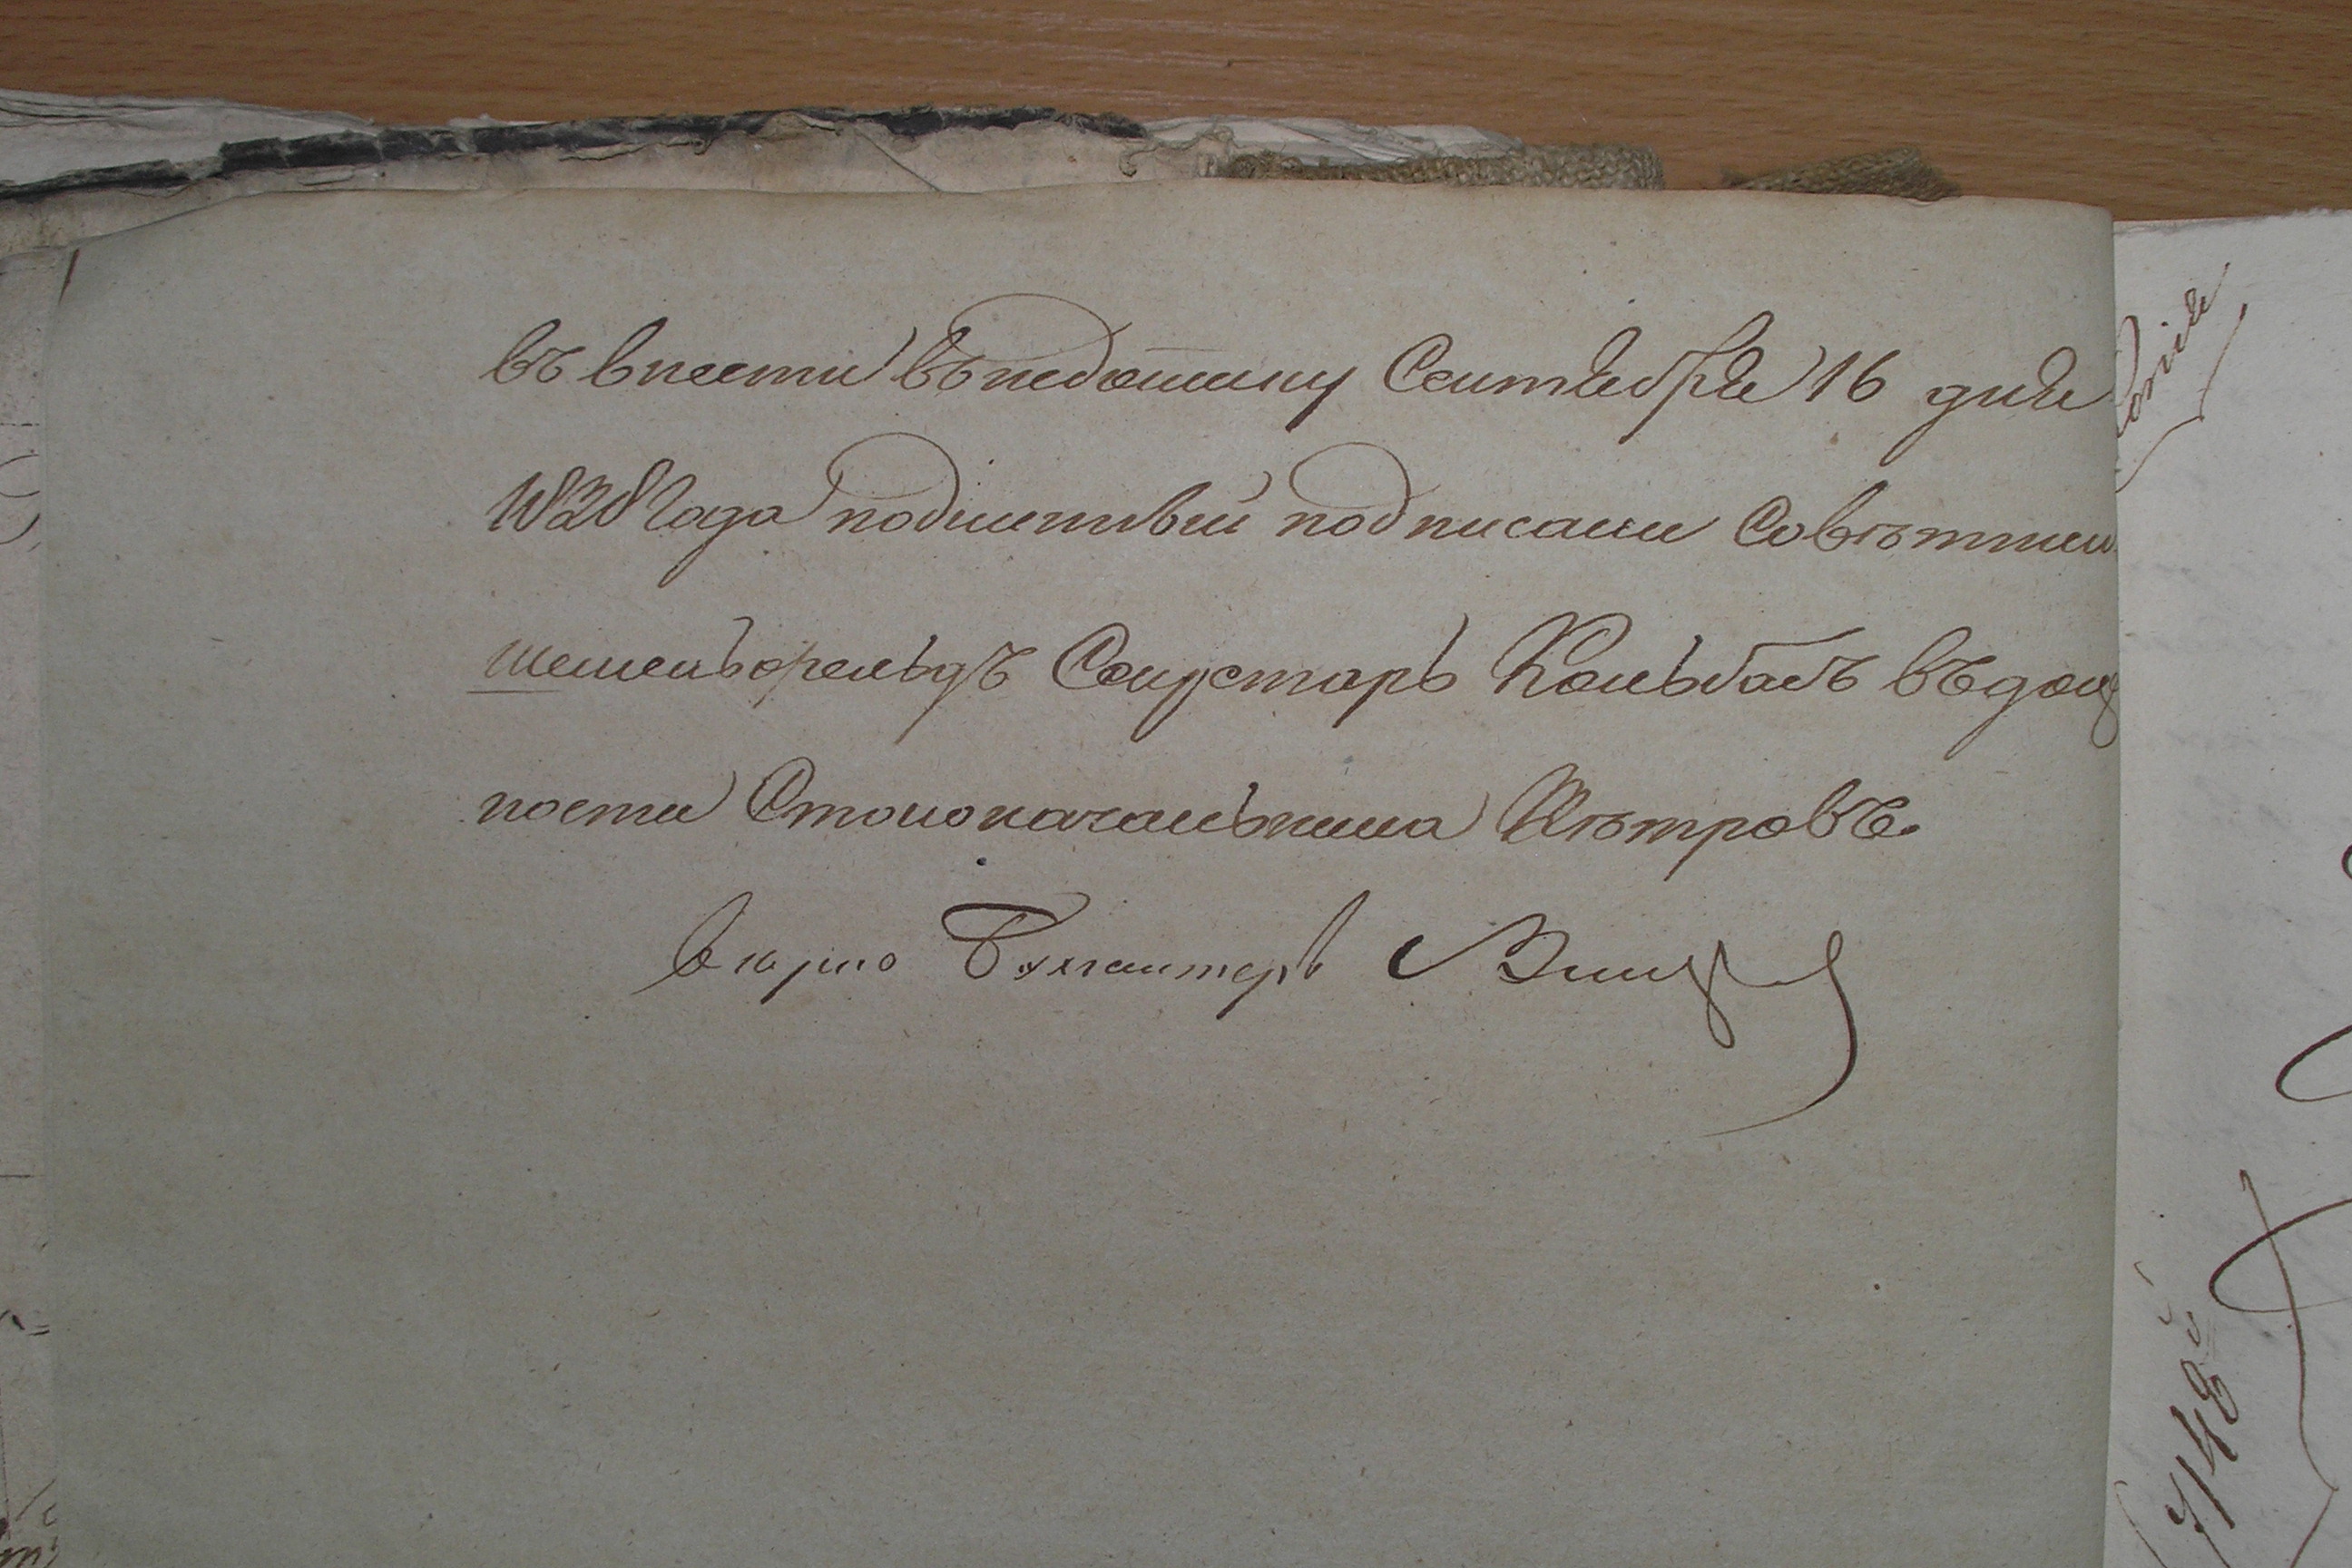 въ внести въ недоимку Сентября 16 дня
1828 года подлинный подписали Совѣтник
Шененфельдъ Секретарь Кольбасъ въ долж
ности Столоначальника Петровъ.
вѣрно Бухгалтеръ
7148й